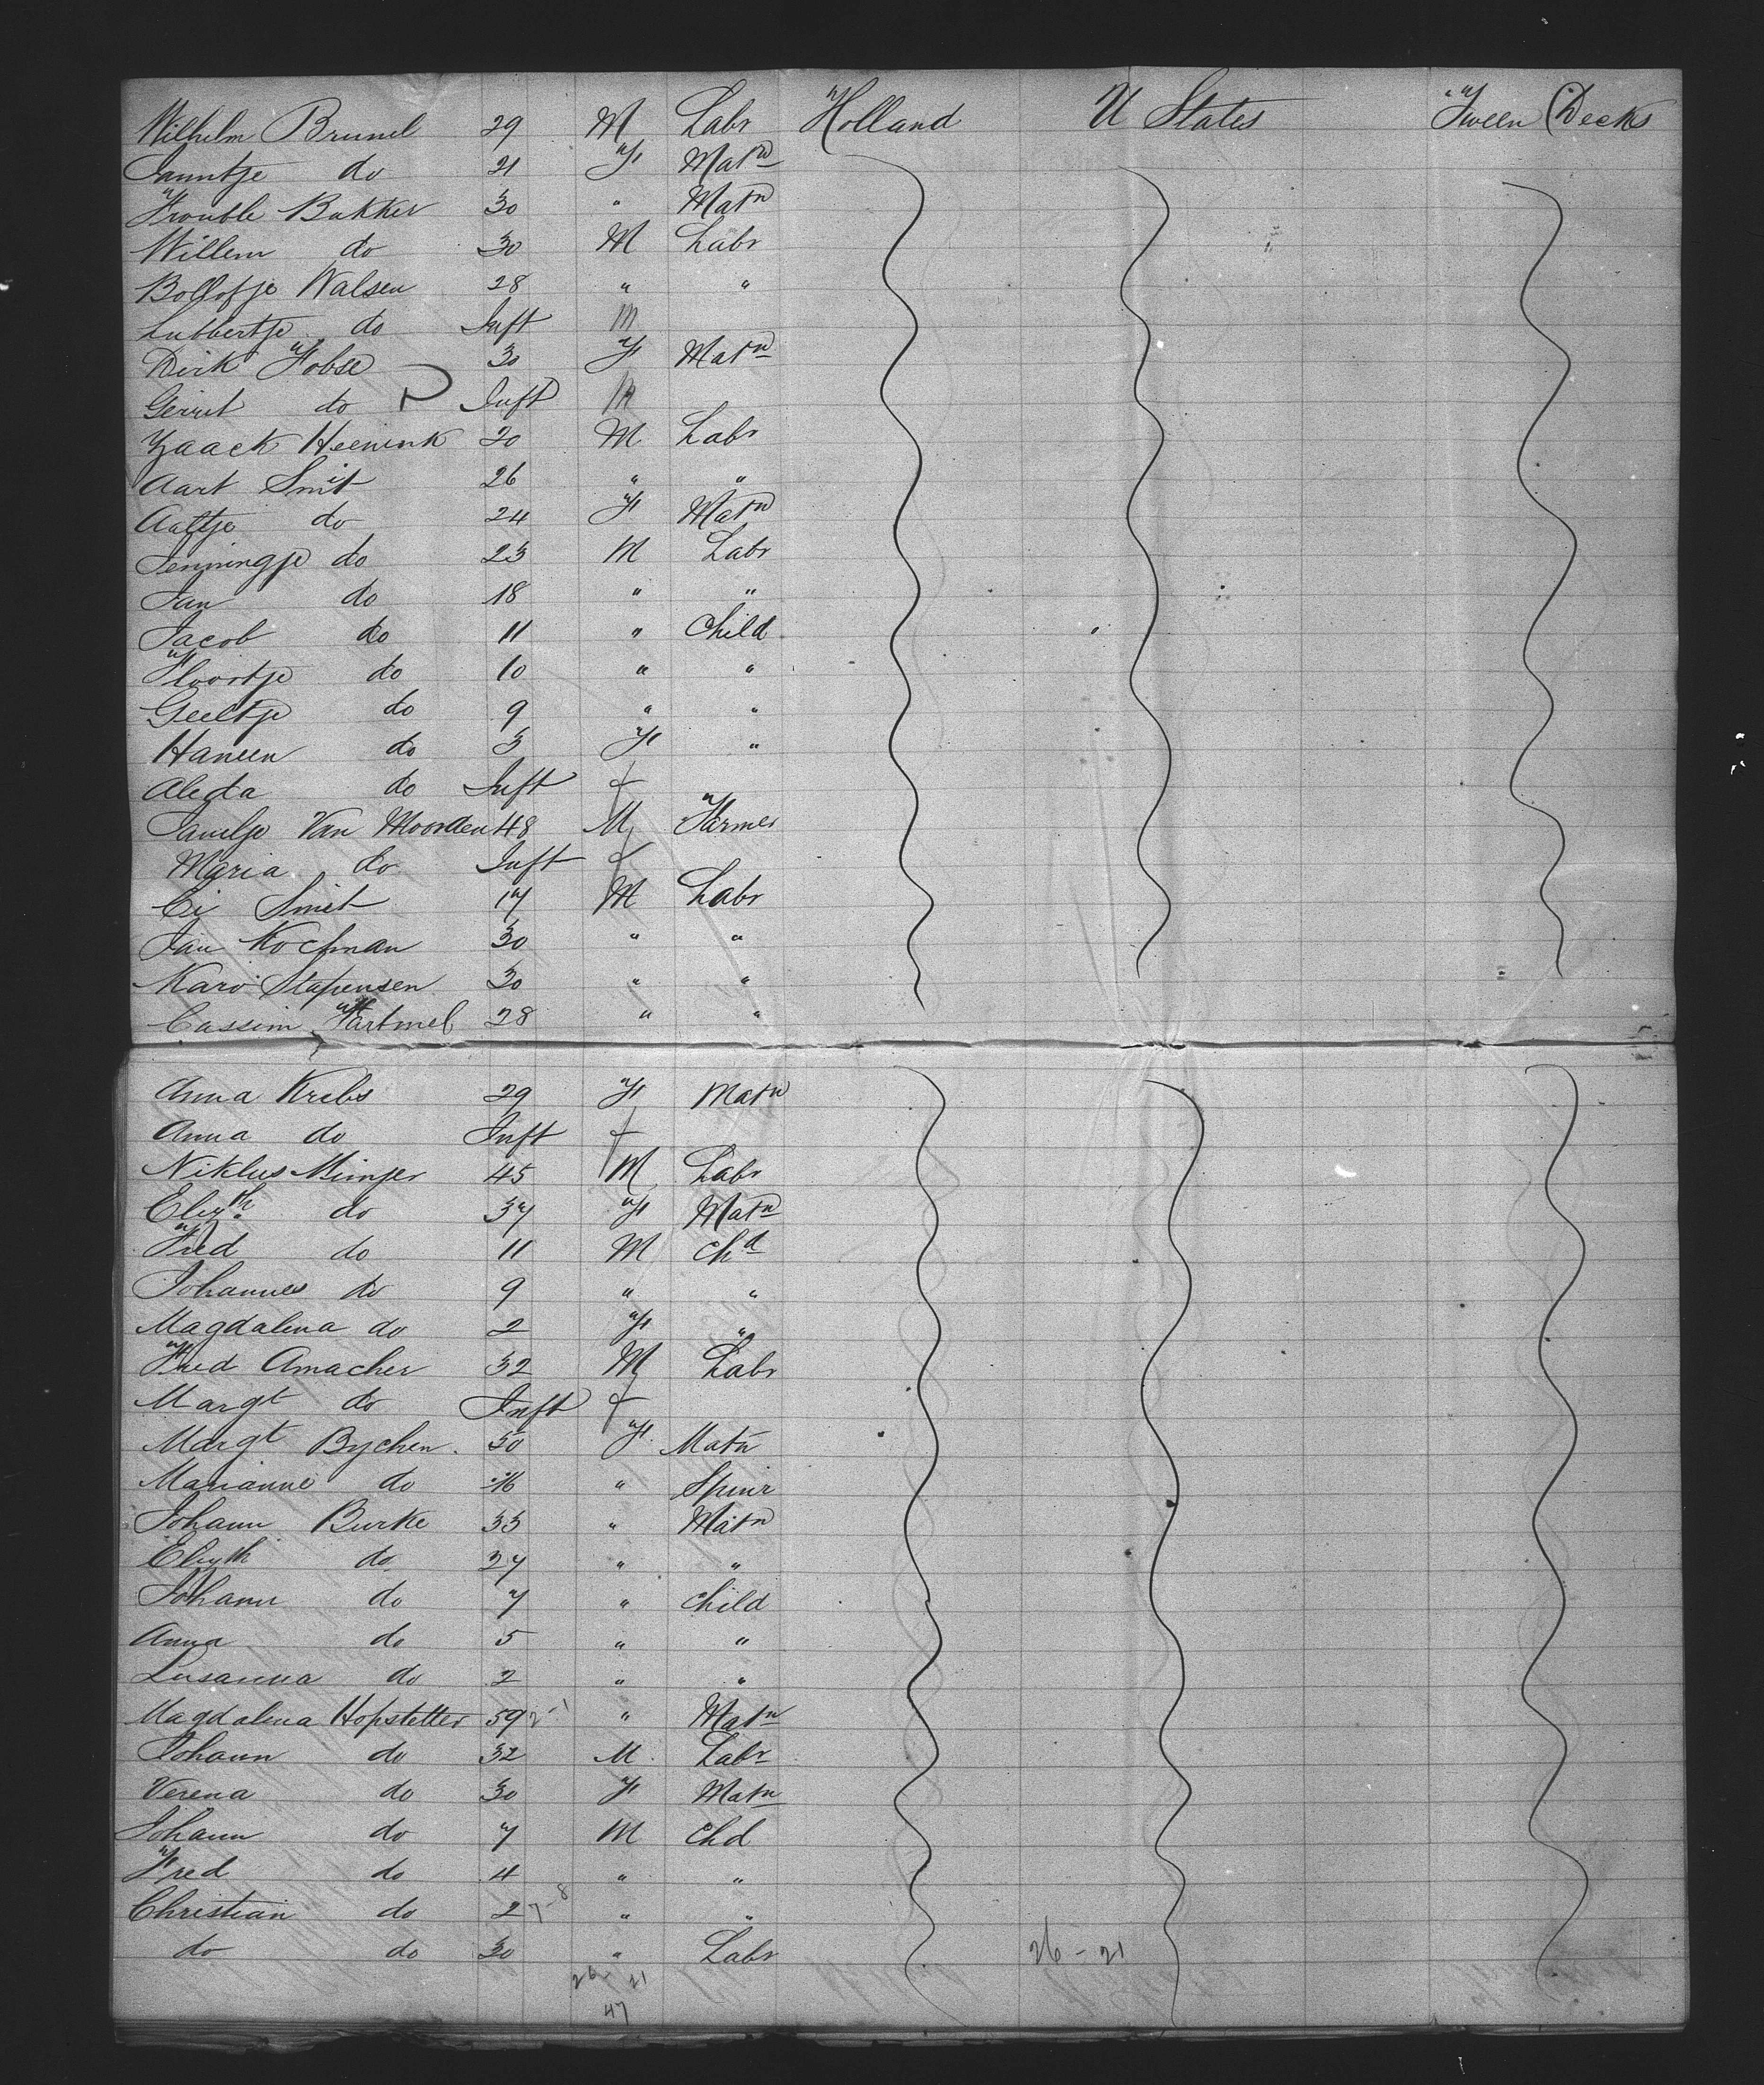 Wilhelm Brunel 29 M Labr Holland U States Tween Decks
Janntje do 21 F Matn
Frouble Bakker 30 " Matn
Willem do 30 M Labr
Bollofje Walsen 28 " "
Lubbertje do Inft M
Dirk Fobse 30 F Matn
Gerrit do Inft M
Izaack Heenink 20 M Labr
Aart Smit 26 " "
Aaltje do 24 F Matn
Jenningje do 23 M Labr
Jan do 18 " "
Jacob do 11 " Child
Floortje do 10 " "
Geeltje do 9 " "
Haneen do 3 F "
Aleda do Inft f
Van Moorden 48 M Farmer
Maria do Inft f
Ci Smit 17 M Labr
Jan Kofman 30 " "
Karo Stapensen 30 " "
Cassim Hartmel 28 " "
Anna Krebs 29 F Matn
Anna do Inft f
Niklus Minger 45 M Labr
Elizth do 37 F Matn
Fred do 11 M Chd
Johannes do 9 " "
Magdalena do 2 F "
Fred Amacher 32 M Labr
Margt do Inft f
Margt Bychen 50 F Matn
Marianne do 16 " Spinr
Johann Burke 33 " Matn
Elizth do 27 " "
Johann do 7 " Child
Anna do 5 " "
Lusanna do 2 " "
Magdalena Hopstetter 59 " Matn
Johann do 32 M Labr
Verena do 30 F Matn
Johann do 7 M Chd
Fred do 4 " "
Christian do 2 7-8 " "
do do 30 " Labr 26 - 21
26 - 21
47